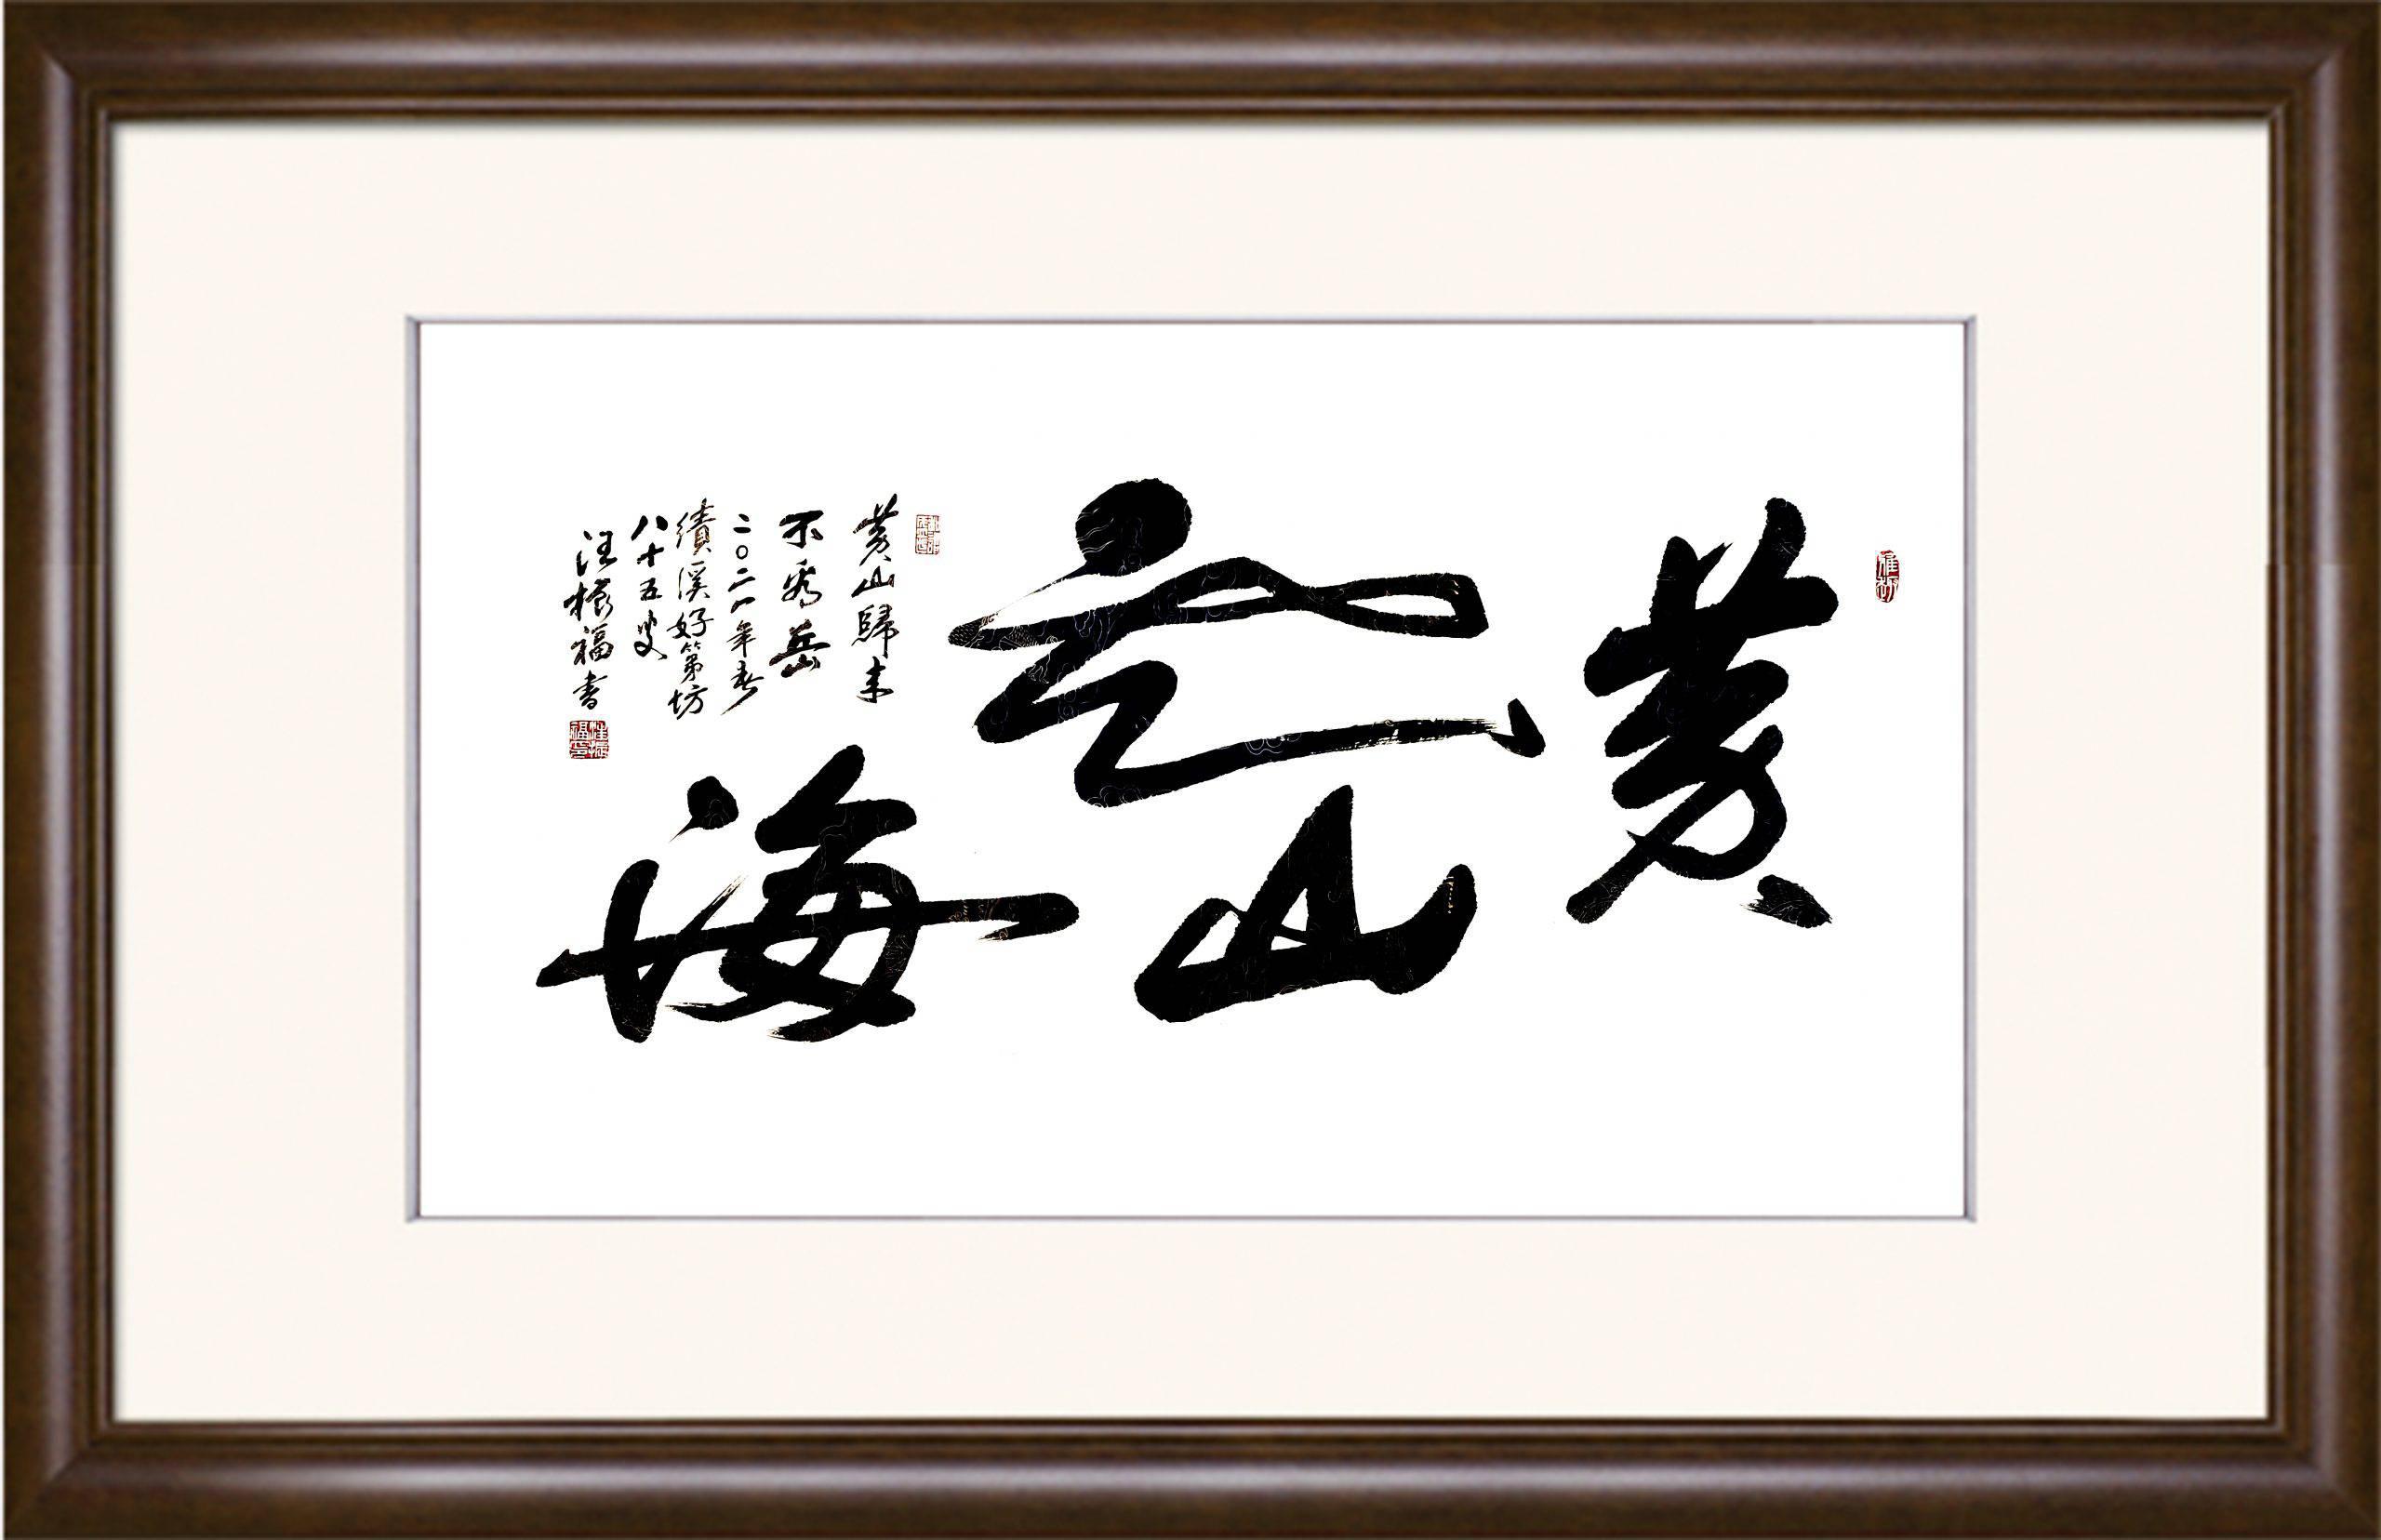 黄山雲海
黄山歸来
不看岳
二〇二一年春
績溪好第坊
八十五叟
汪振福書
汪振福印